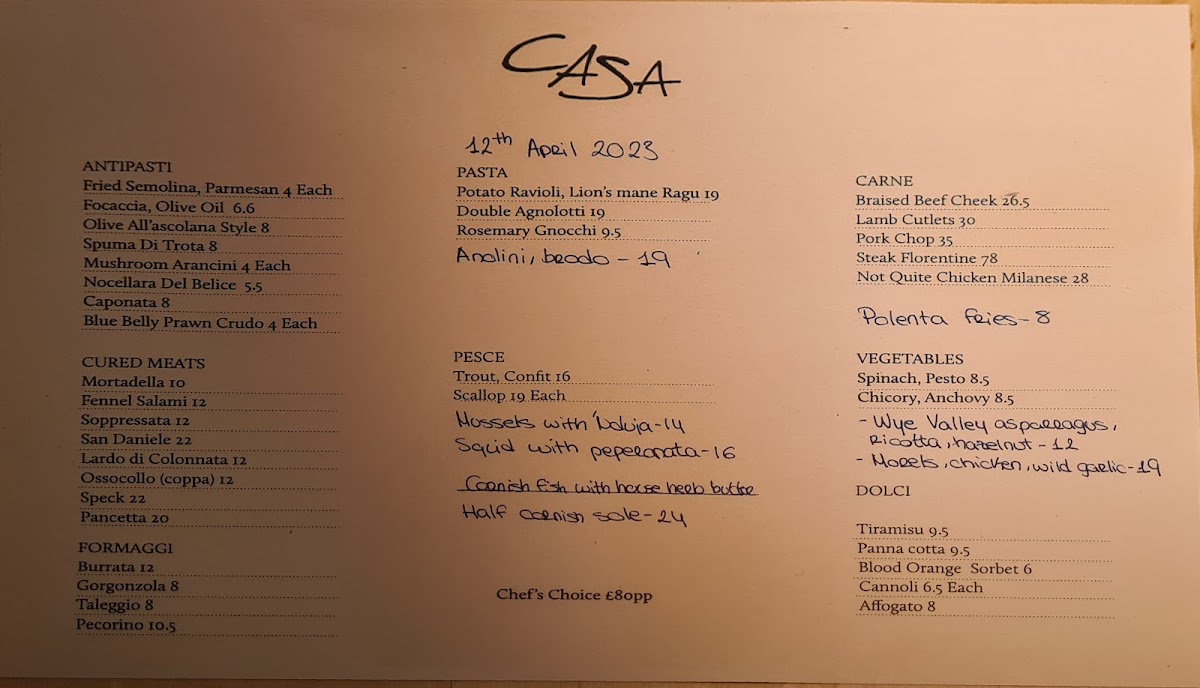 CASA
12th April 2023
ANTIPASTI
Fried Semolina, Parmesan 4 Each
Focaccia, Olive Oil 6.6
Olive All'ascolana Style 8
Spuma Di Trota 8
Mushroom Arancini 4 Each
Nocellara Del Belice 5.5
Caponata 8
Blue Belly Prawn Crudo 4 Each
CURED MEATS
Mortadella 10
Fennel Salami 12
Soppressata 12
San Daniele 22
Lardo di Colonnata 12
Ossocollo (coppa) 12
Speck 22
Pancetta 20
FORMAGGI
Burrata 12
Gorgonzola 8
Taleggio 8
Pecorino 10.5
PASTA
Potato Ravioli, Lion's mane Ragu 19
Double Agnolotti 19
Rosemary Gnocchi 9.5
Anolini, brodo - 19
PESCE
Trout, Confit 16
Scallop 19 Each
Mussels with 'Nduja - 14
Squid with peperonata - 16
Cornish fish with horse herb butter
Half cornish sole - 24
Chef's Choice £80pp
CARNE
Braised Beef Cheek 26.5
Lamb Cutlets 30
Pork Chop 35
Steak Florentine 78
Not Quite Chicken Milanese 28
Polenta fries - 8
VEGETABLES
Spinach, Pesto 8.5
Chicory, Anchovy 8.5
- Wye Valley asparragus,
ricotta, hazelnut - 12
- Morels, chicken, wild garlic - 19
DOLCI
Tiramisu 9.5
Panna cotta 9.5
Blood Orange Sorbet 6
Cannoli 6.5 Each
Affogato 8